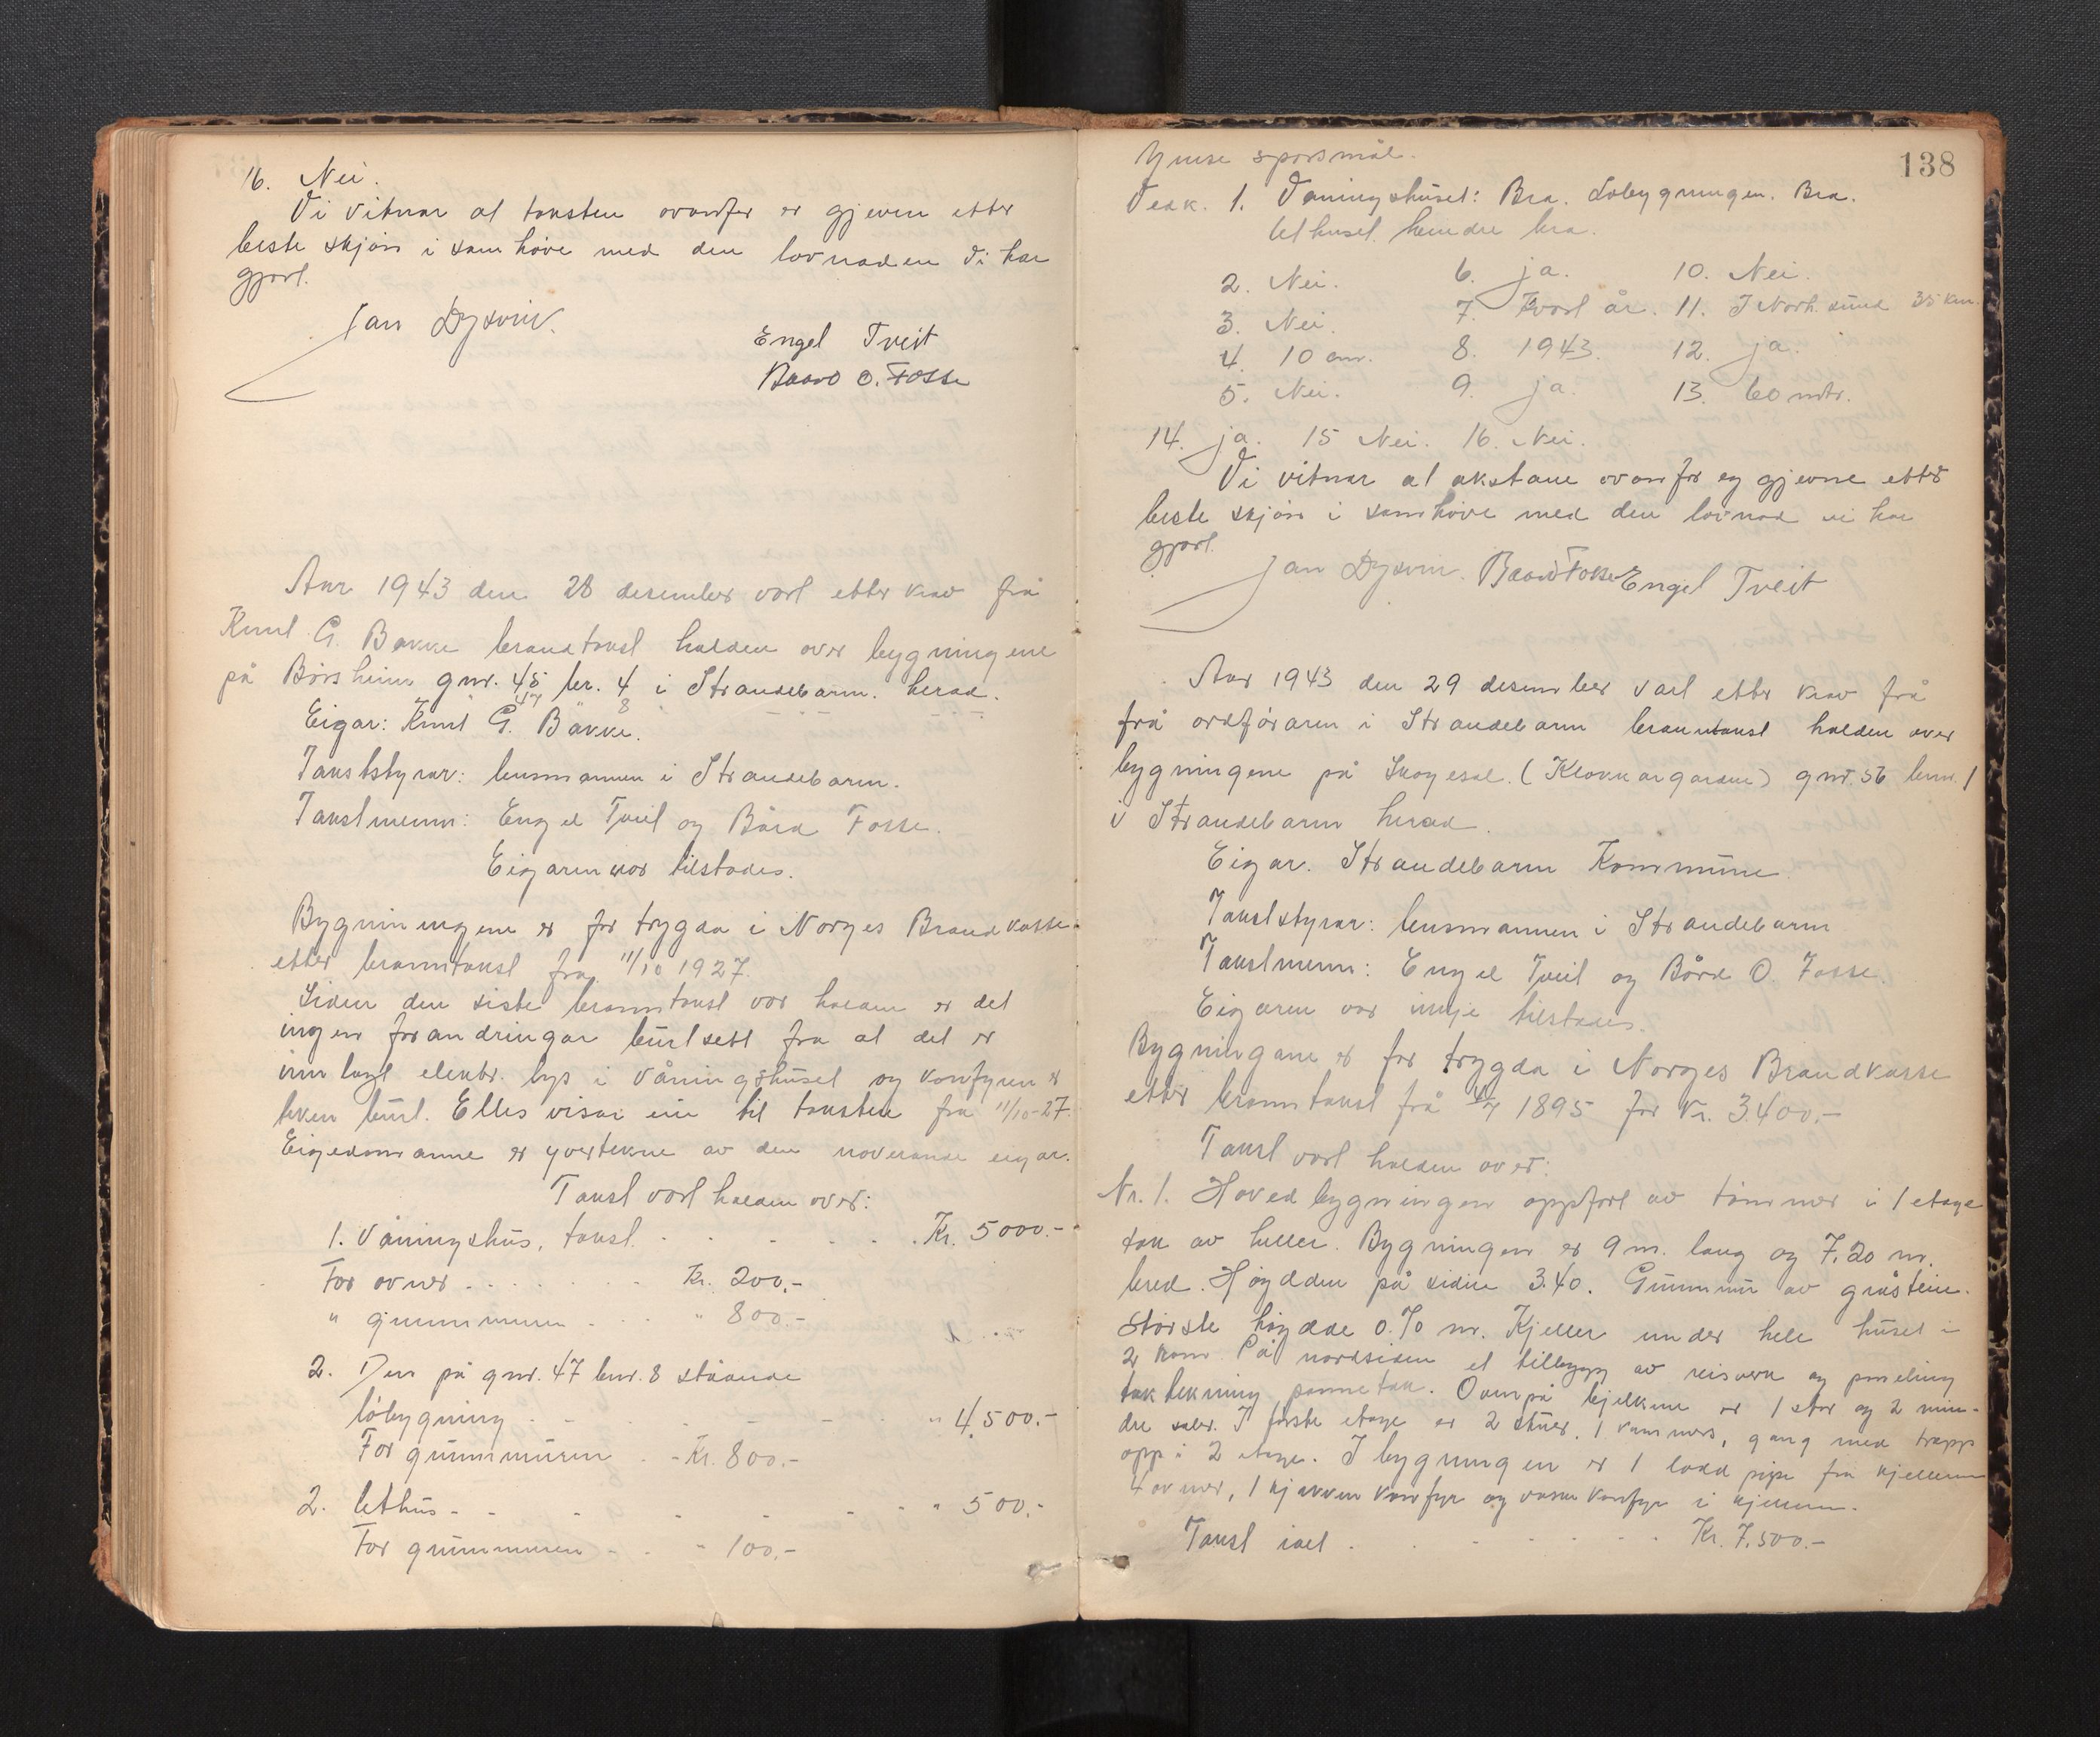 16. Nei.
Vi vitnar at taksten ovanfor er gjeven etter
beste skjøn i samhøve med den lovnaden vi har
gjort.
Jan Dysvik.
Engel Tveit
Baard O. Fosse
Aar 1943 den 28 desember vart etter krav frå
Knut G. Bakke brandtakst halden over bygningene
på Børsheim gnr. 48 br. 4 i Strandebarm. herad.
" 47 " 8
Eigar: Knut G. Bakke.
Takststyrar: lensmannen i Strandebarm.
Takstmenn: Engel Tveit og Bård Fosse.
Eigaren var tilstades.
Bygningene er for trygda i Norges Brandkasse
etter branntakst fra 11/10 1927.
Siden den siste branntakst var halden er det
ingen forandringar burtsett fra at det er
inn lagt elektr. lys i våningshuset og komfyren er
teken burt. Elles visar ein til taksten fra 11/10-27.
Eigedomanne er yvertekne av den noverande eigar.
Takst vart halden over:
1. Våningshus, takst . . . . . . Kr. 5000.-
For ovner . . . . . . Kr. 200.-
" grunnmuren . . . " 800.-
2. Den på gnr. 47 bnr. 8 stående
løbygning - - - - - " 4.500.-
For grunnmuren . - Kr. 800.-
2. Uthus - - - - - - " 500.-
For grunnmuren - - " 100.-
138
Ymse spørsmål.
Vedk. 1. Våningshuset: Bra. Løbygningen. Bra.
Uthuset. heindre bra.
2. Nei. 6. ja. 10. Nei.
3. Nei. 7. Kvart år. 11. I Norh.sund 35 km.
4. 10 cm. 8. 1943. 12. ja.
5. Nei. 9. ja. 13. 60 mtr.
14. ja. 15 Nei. 16. Nei.
Vi vitnar at takstane ovanfor er gjevne etter
beste skjøn i samhøve med den lovnad vi har
gjort.
Jan Dysvik. Baard Fosse Engel Tveit
Aar 1943 den 29 desember vart etter krav frå
frå ordføraren i Strandebarm branntakst halden over
bygningene på Skogesal. (Klokkargarden) gnr. 56 bnr. 1
i Strandebarm herad.
Eigar. Strandebarm Kommune.
Takststyrar: lensmannen i Strandebarm
Takstmenn: Engel Tveit og Bård O. Fosse.
Eigaren var ikkje tilstades.
Bygningane er for trygda i Norges Brandkasse
etter branntakst frå 1895 for Kr. 3.400.-
Takst vart halden over:
Nr. 1. Hovedbygningen oppført av tømmer i 1 etage
tak av heller. Bygningen er 9 m. lang og 7,20 m.
bred. Høydden på sidene 3.40. Grunnmur av gråstein.
Største høydde 0.70 m. Kjeller under hele huset i
2 rom. På nordsiden et tilbygg av reisverk og paneling
taktekning pannetak. Ovenpå bjelkene er 1 stor og 2 min-
dre saler. I første etage er 2 stuer, 1 kammers, gang med trapp
opp i 2 etage. I bygningen er 1 lodd pipe fra kjelleren
4 ovner, 1 kjøkken komfyr og vaske komfyr i kjelleren.
Takst ialt . . - - - . . Kr. 7.500.-